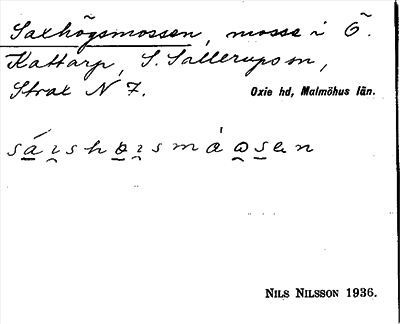 Saxhögsmossen, mosse i Ö.
Kattarp, S. Sallerups sn,
Strax N 7. Oxie hd, Malmöhus län.
NILS NILSSON 1936.